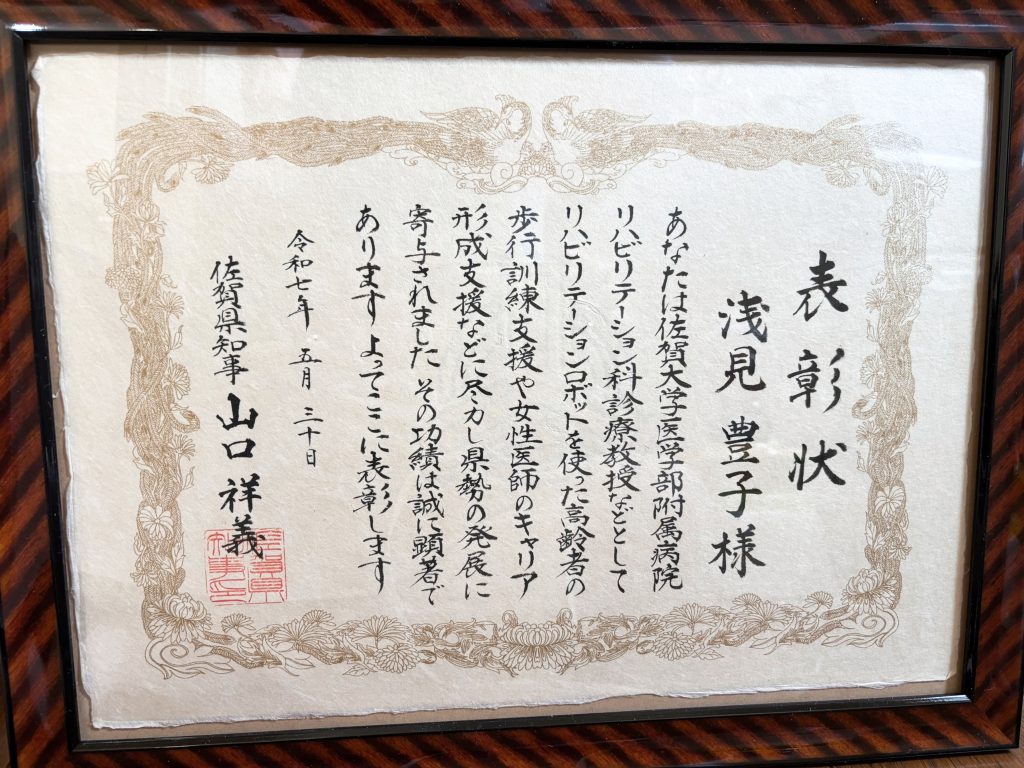 表彰状
浅見 豊子様
あなたは佐賀大学医学部附属病院
リハビリテーション科診療教授などとして
リハビリテーションロボットを使った高齢者の
歩行訓練支援や女性医師のキャリア
形成支援などに尽力し県勢の発展に
寄与されました その功績は誠に顕著で
あります よってここに表彰します
令和七年 五月 三十日
佐賀県知事 山口 祥義